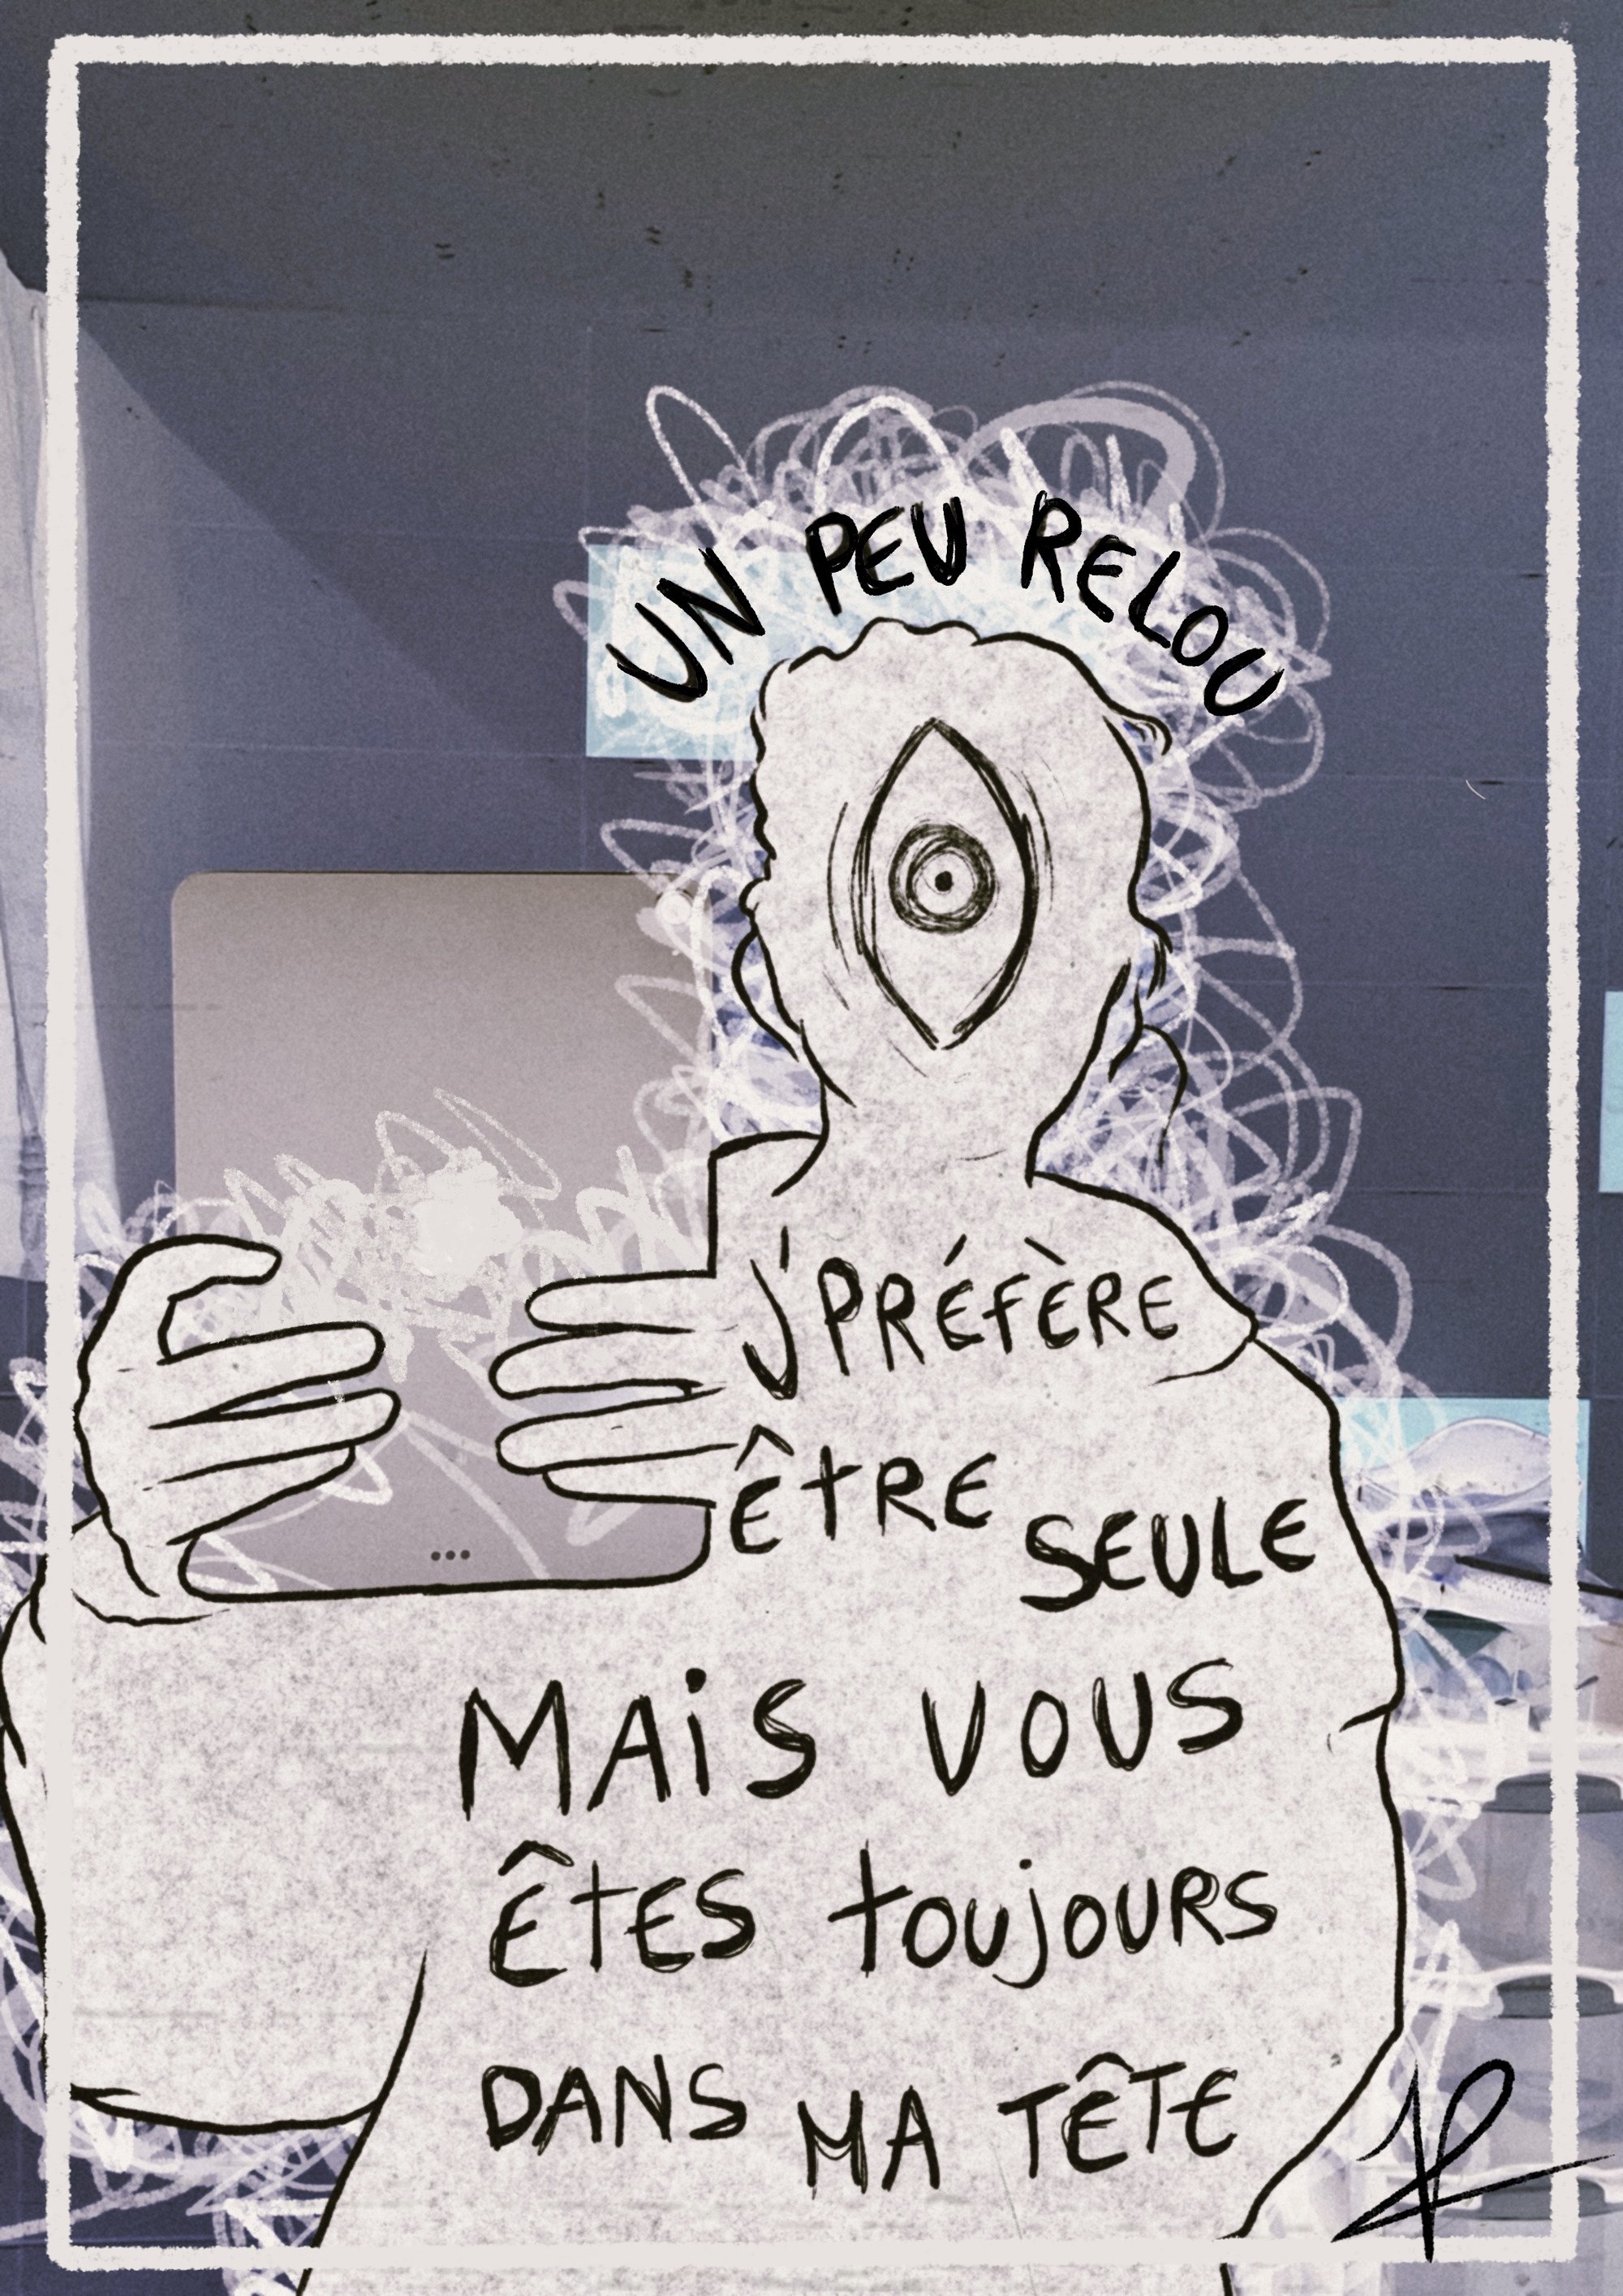 UN PEU RELOU
J'PRÉFÈRE
ÊtRE SEULE
MAiS VOUS
ÊtES toujOURS
DANS MA TÊTE